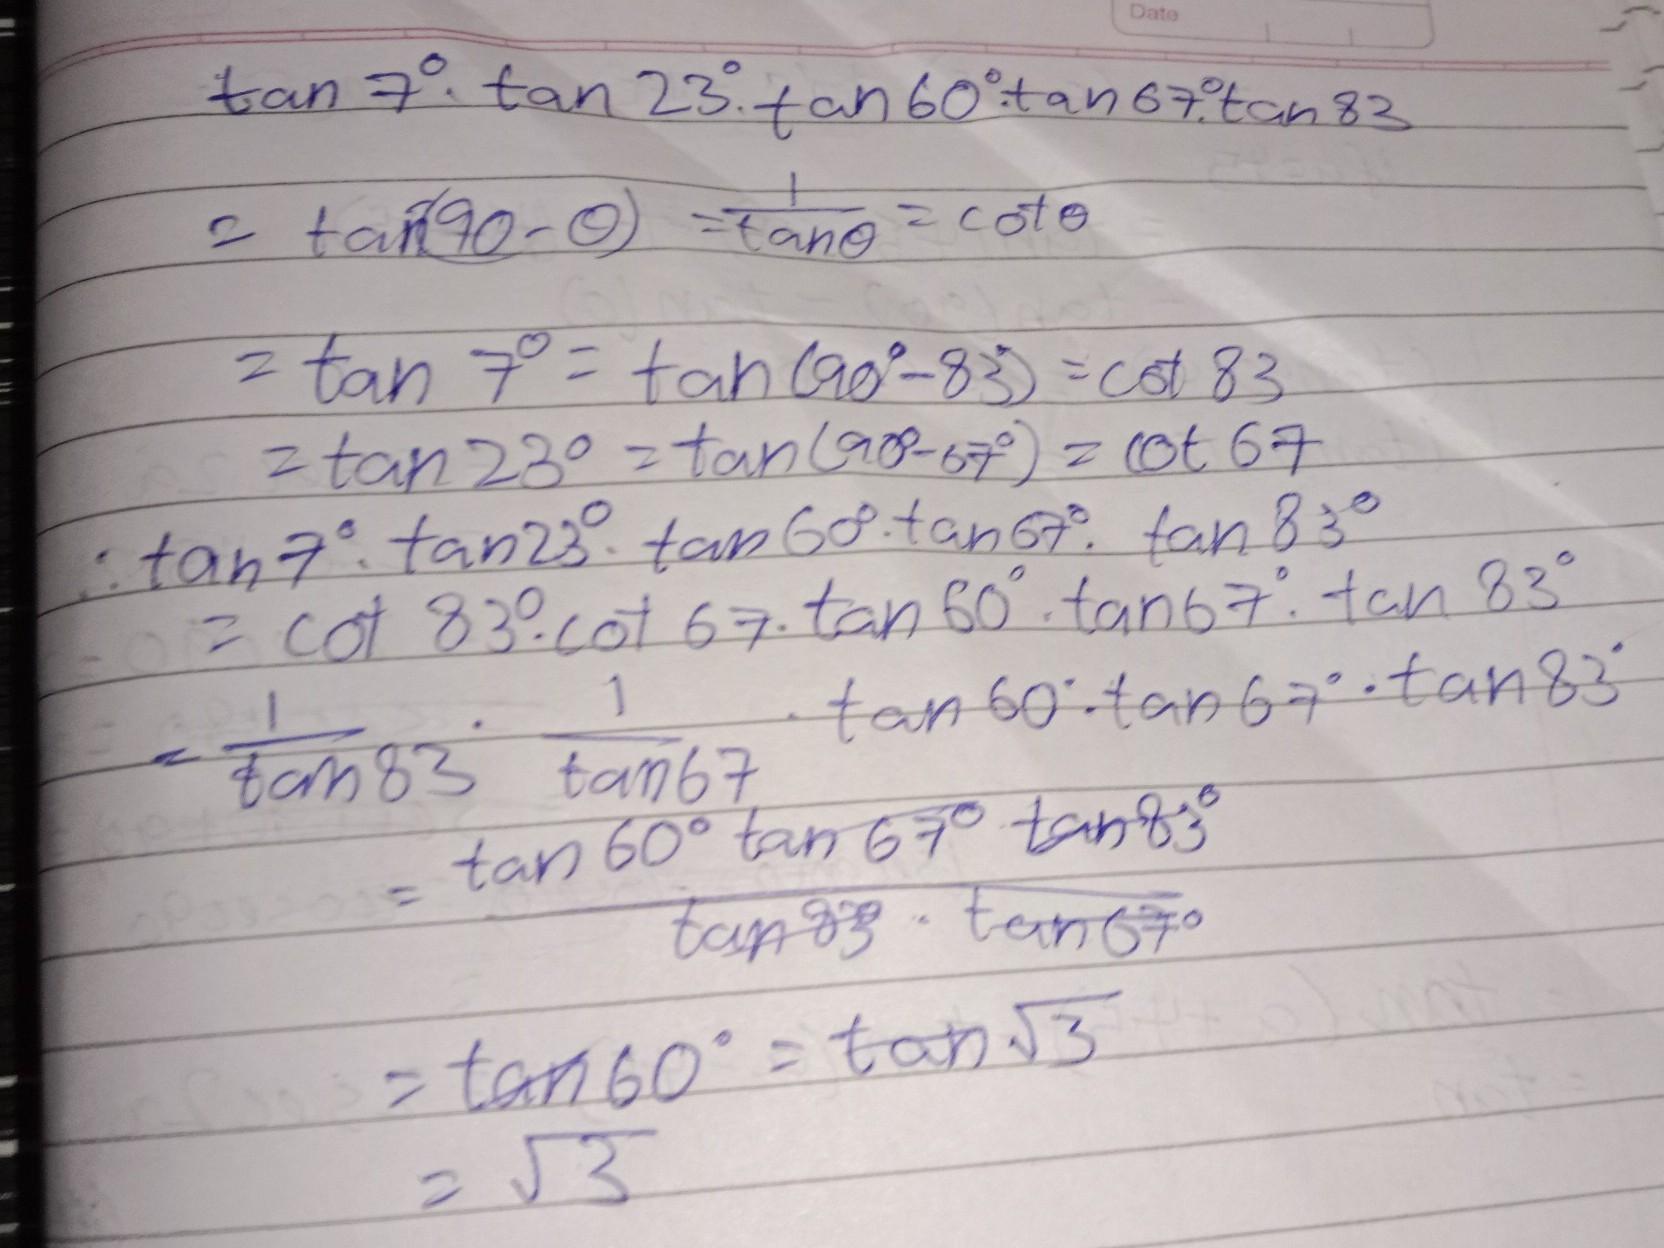 Date
tan 7°. tan 23°. tan 60°. tan 67°. tan 83
= tan(90-θ) = 1/tanθ = cotθ
= tan 7° = tan (90°-83°) = cot 83
= tan 23° = tan (90°-67°) = cot 67
∴ tan 7°. tan 23°. tan 60°. tan 67°. tan 83°
= cot 83°. cot 67. tan 60°. tan 67°. tan 83°
= 1/tan 83 . 1/tan 67 . tan 60°. tan 67°. tan 83°
= tan 60° tan 67° tan 83° / tan 83° . tan 67°
= tan 60° = tan √3
= √3